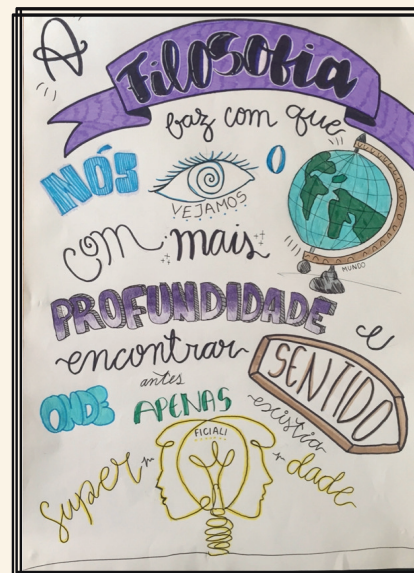 A
Filosofia
faz com que
NÓS
VEJAMOS
O
MUNDO
com mais
PROFUNDIDADE e
encontrar SENTIDO
ONDE antes APENAS existia
super FICIALI dade